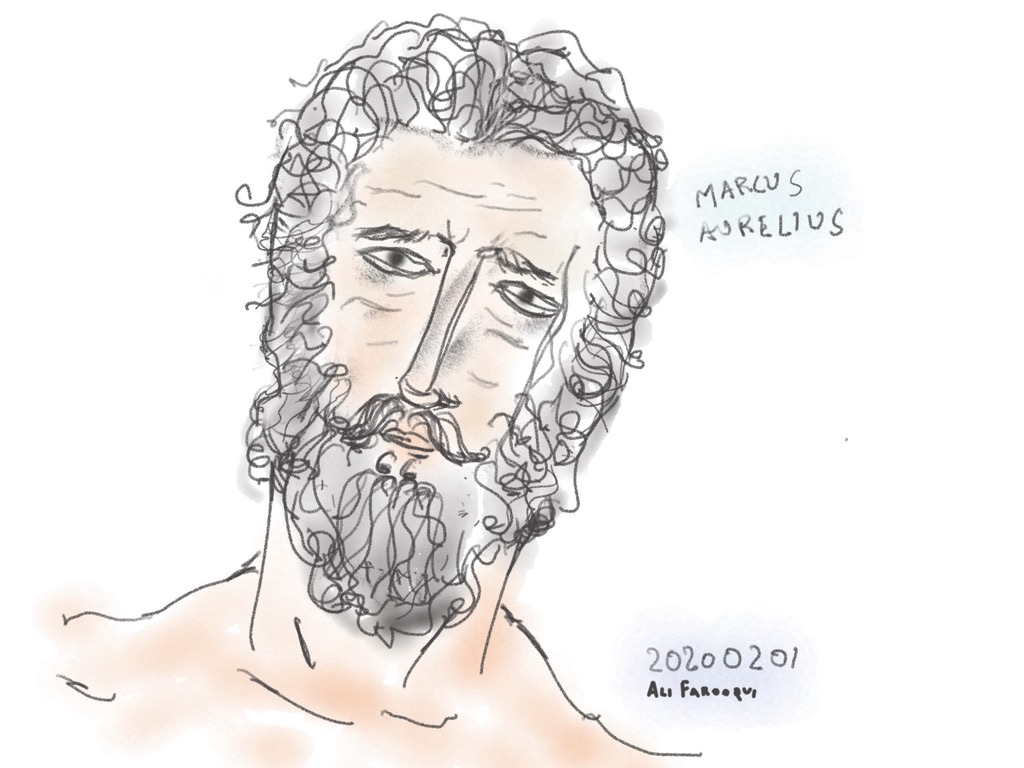 MARCUS
AURELIUS
20200201
ALI FAROOQUI